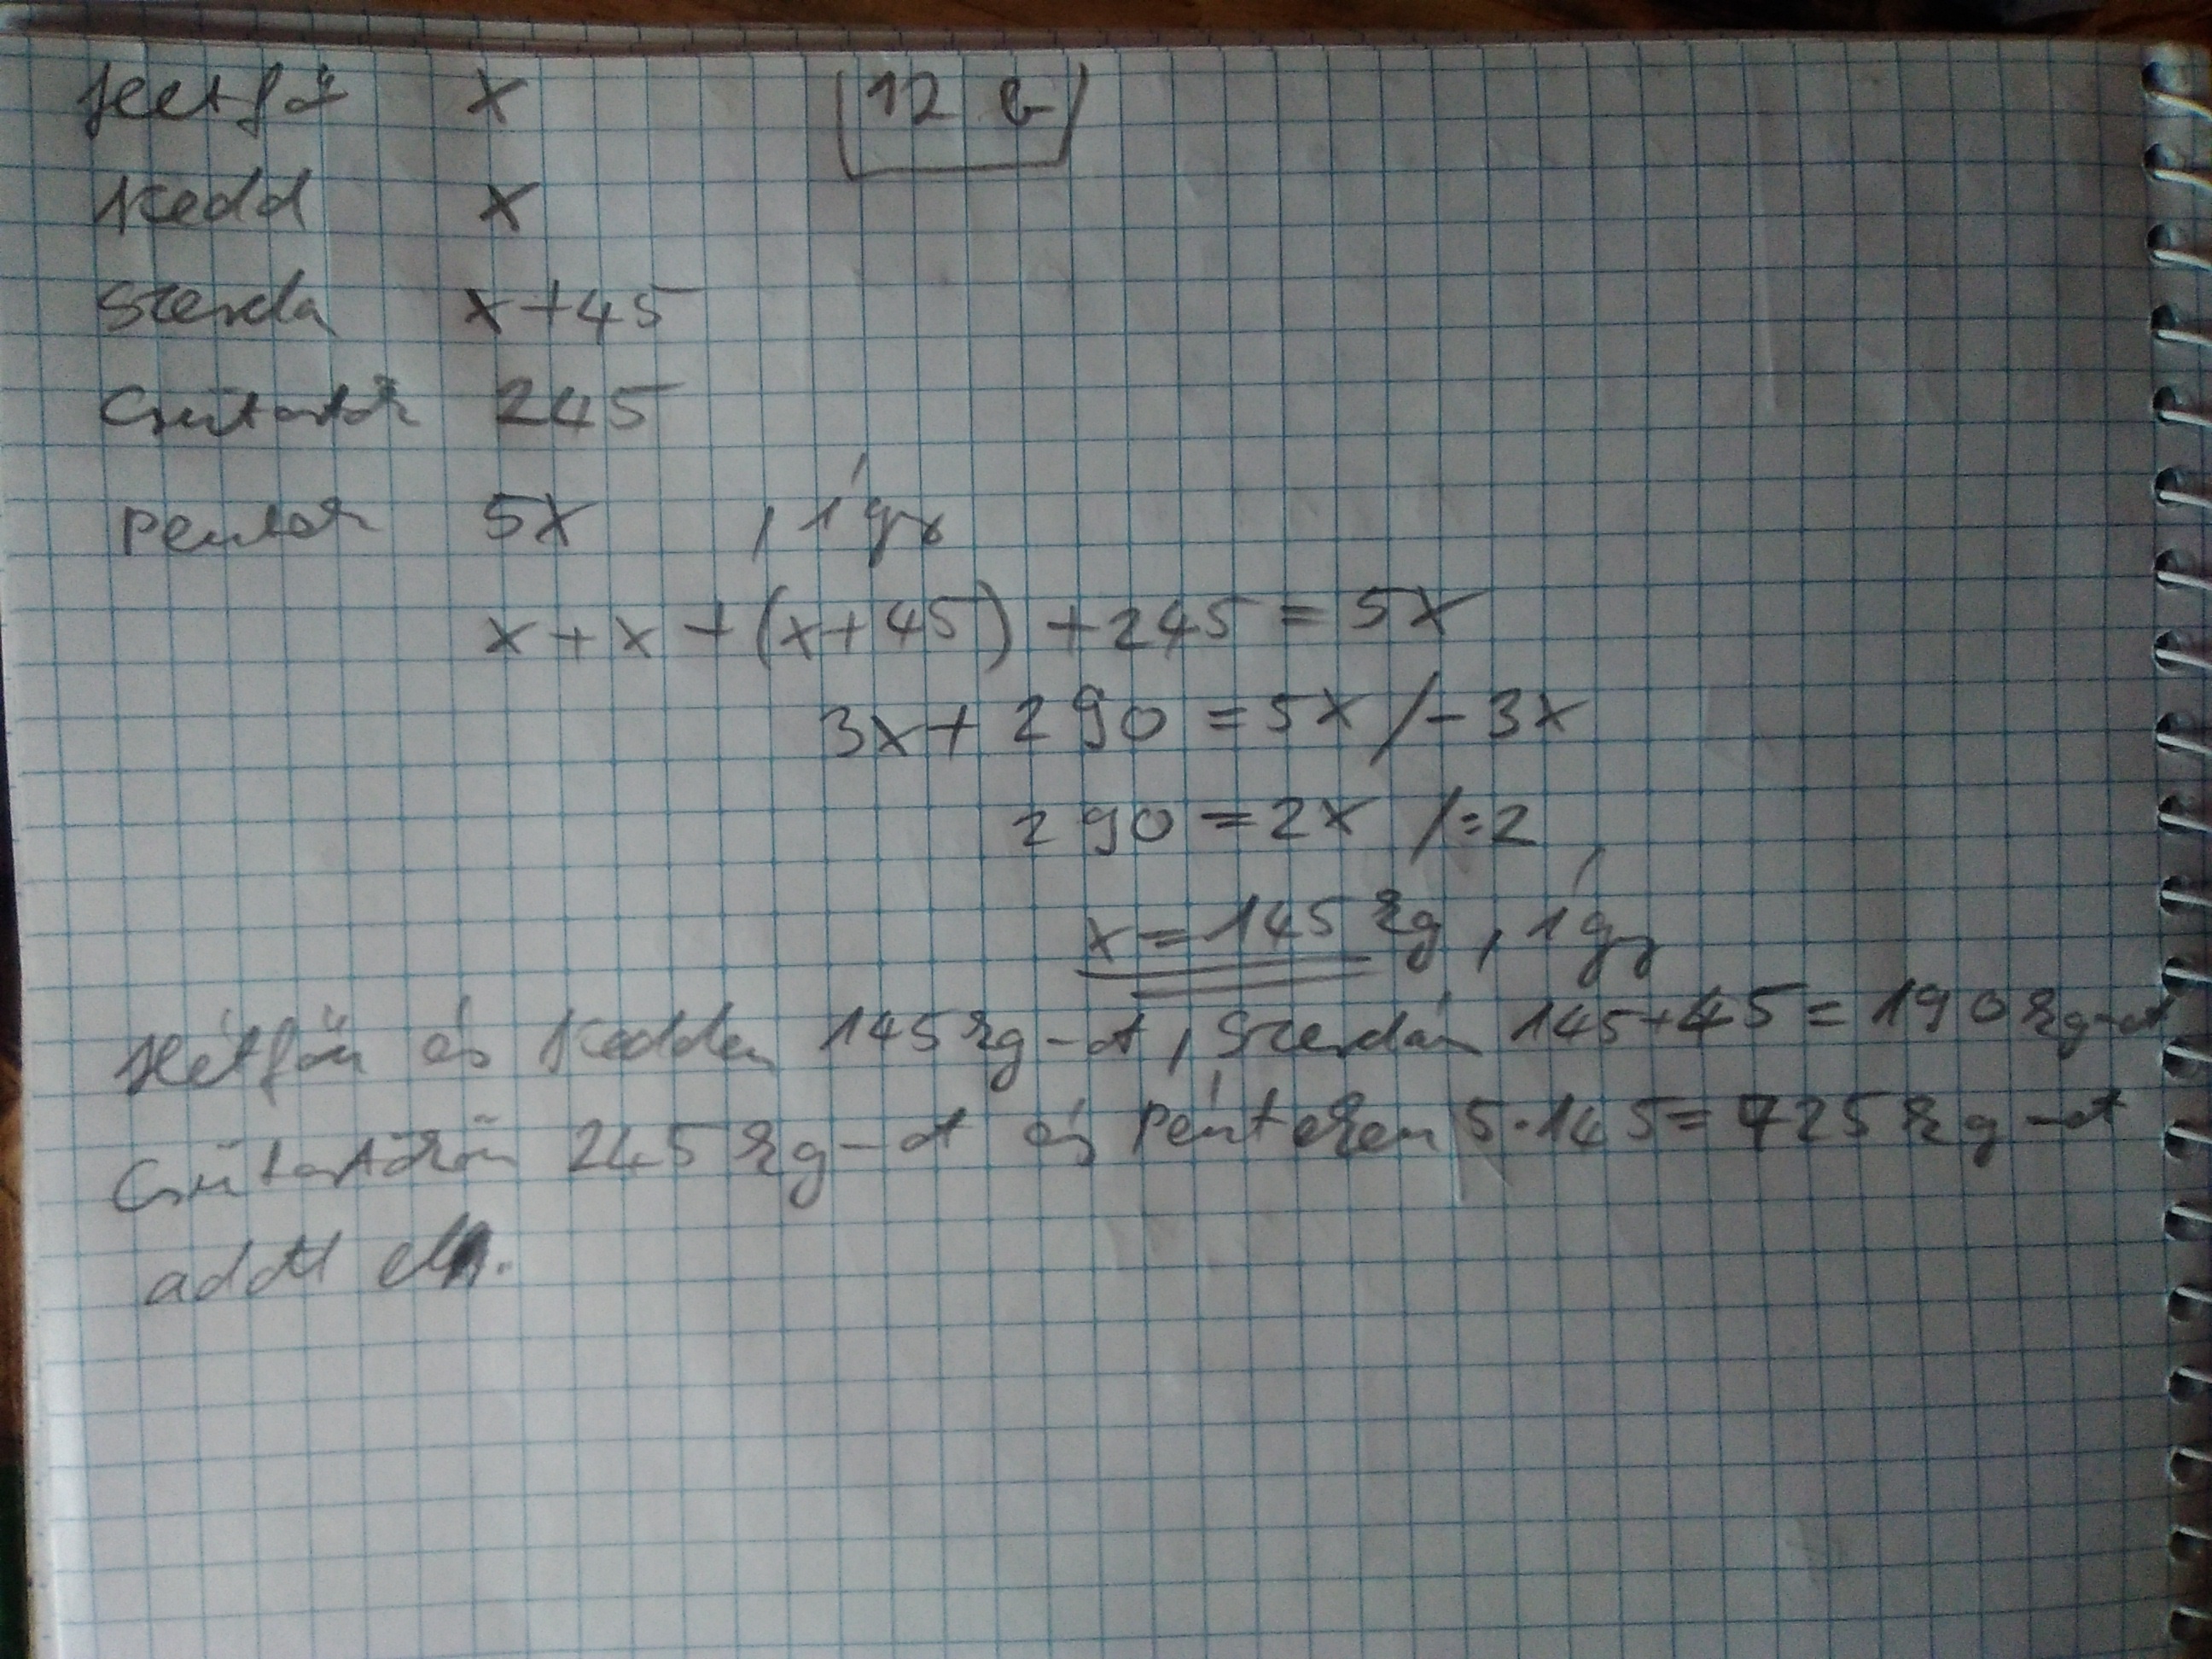 Hétfő x 12 b
Kedd x
Szerda x+45
Csütörtök 245
Péntek 5x , így
x+x+(x+45)+245=5x
3x+290=5x /-3x
290=2x /:2
x=145 kg, így
Hétfőn és Kedden 145 kg-ot, Szerdán 145+45=190 kg-ot
Csütörtökön 245 kg-ot és Pénteken 5·145=725 kg-ot
adott el.